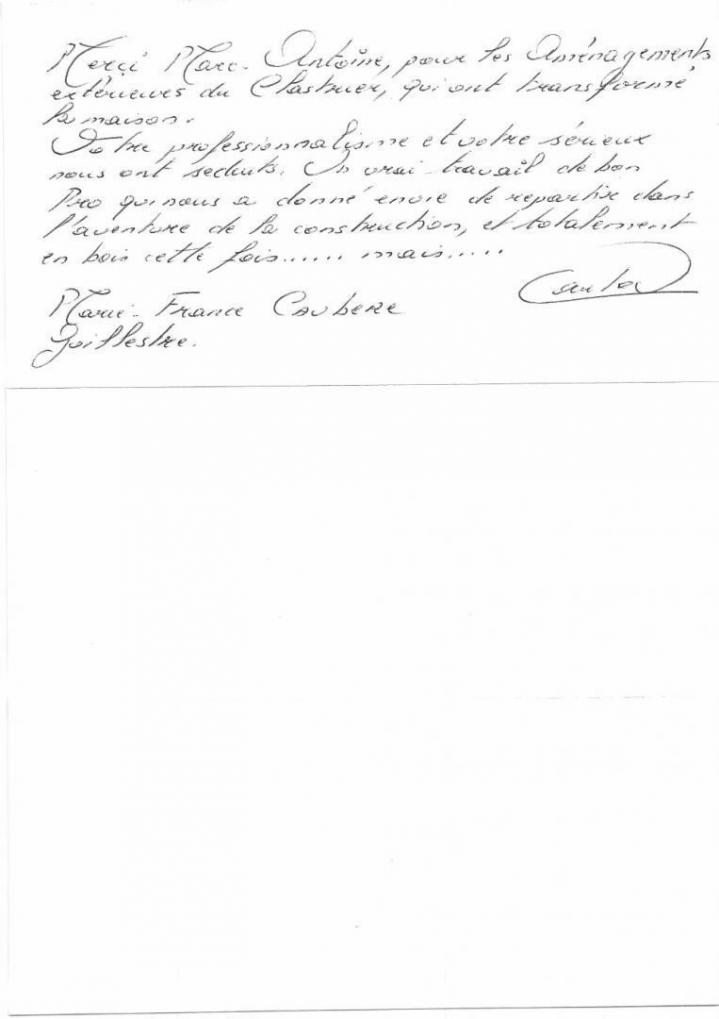 Merçi Marc-Antoine, pour les Aménagements
extérieures du Clastrier, qui ont transformé
la maison.
Votre professionnalisme et votre sérieux
nous ont seduits. Un vrai travail de bon
Pro qui nous a donné envie de repartir dans
l'aventure de la construction, et totalement
en bois cette fois...... mais.....
Marie-France Caubere
Guillestre.